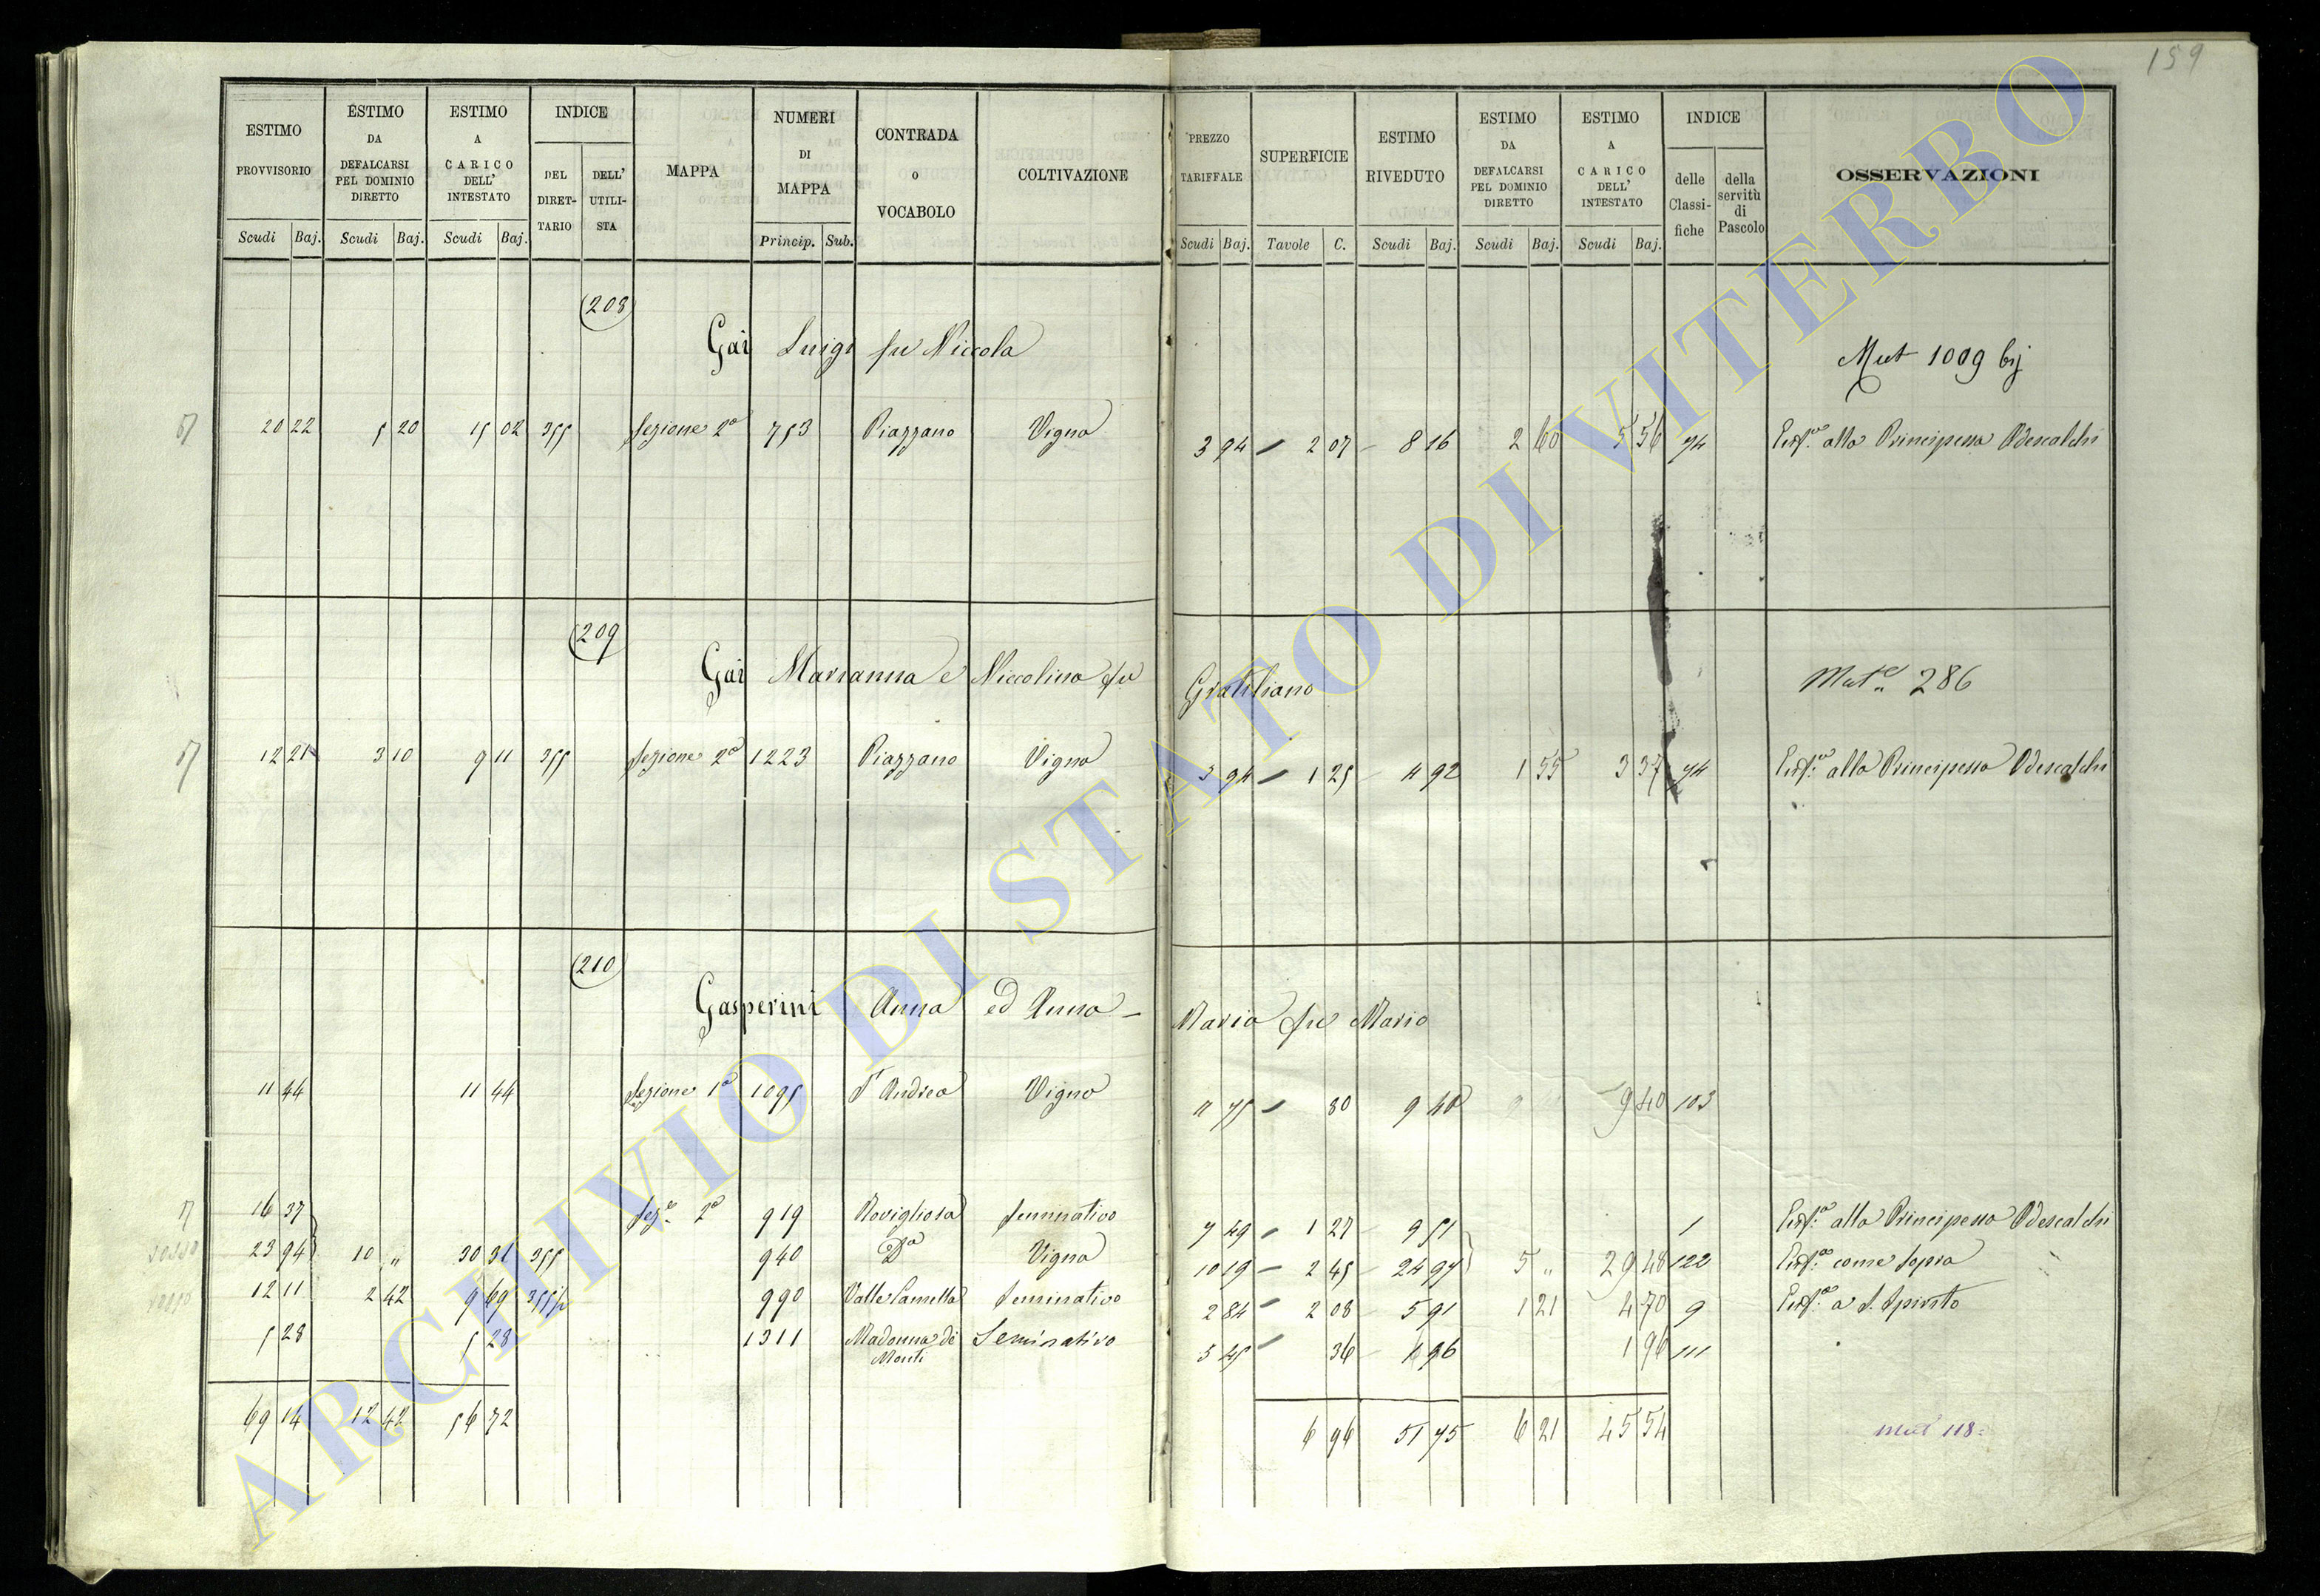 159
ESTIMO PROVVISORIO
ESTIMO DA DEFALCARSI PEL DOMINIO DIRETTO
ESTIMO A CARICO DELL' INTESTATO
INDICE
DEL DIRET-TARIO
DELL' UTILI-STA
MAPPA
NUMERI DI MAPPA
CONTRADA o VOCABOLO
COLTIVAZIONE
PREZZO TARIFFALE
SUPERFICIE
ESTIMO RIVEDUTO
ESTIMO DA DEFALCARSI PEL DOMINIO DIRETTO
ESTIMO A CARICO DELL' INTESTATO
INDICE
delle Classi-fiche
della servitù di Pascolo
OSSERVAZIONI
Scudi Baj. Scudi Baj. Scudi Baj. Princip. Sub. Scudi Baj. Tavole C. Scudi Baj. Scudi Baj. Scudi Baj.
(208)
Gai Luigi fu Niccola
Mut 1009 bij
20 22 5 20 15 02 355 Sezione 2a 753 Piazzano Vigna 3 94 2 07 8 16 2 60 5 56 74 Enf.a alla Principessa Odescalchi
(209)
Gai Marianna e Niccolina fu Gratiliano
Mut.e 286
12 21 3 10 9 11 355 Sezione 2a 1223 Piazzano Vigna 3 94 1 25 4 92 1 55 3 37 74 Enf.a alla Principessa Odescalchi
(210)
Gasperini Anna ed Anna - Maria fu Mario
11 44 11 44 Sezione 1a 1095 S. Andrea Vigna 11 75 80 9 40 9 40 103
16 37 Sez.e 2a 919 Rovigliosa Seminativo 7 49 1 27 9 51 1 Enf.a alla Principessa Odescalchi
rosso 23 94 10 " 30 31 355 940 Da Vigna 10 19 2 45 24 97 5 " 29 48 122 Enf.a come sopra
rosso 12 11 2 42 9 69 355 990 Valle Camella Seminativo 2 84 2 08 5 91 1 21 4 70 9 Enf.a a S. Spirito
5 28 5 28 1311 Madonna dei Monti Seminativo 5 45 36 1 96 1 96 111
69 14 12 42 56 72 6 96 51 75 6 21 45 54
Mut 118
ARCHIVIO DI STATO DI VITERBO